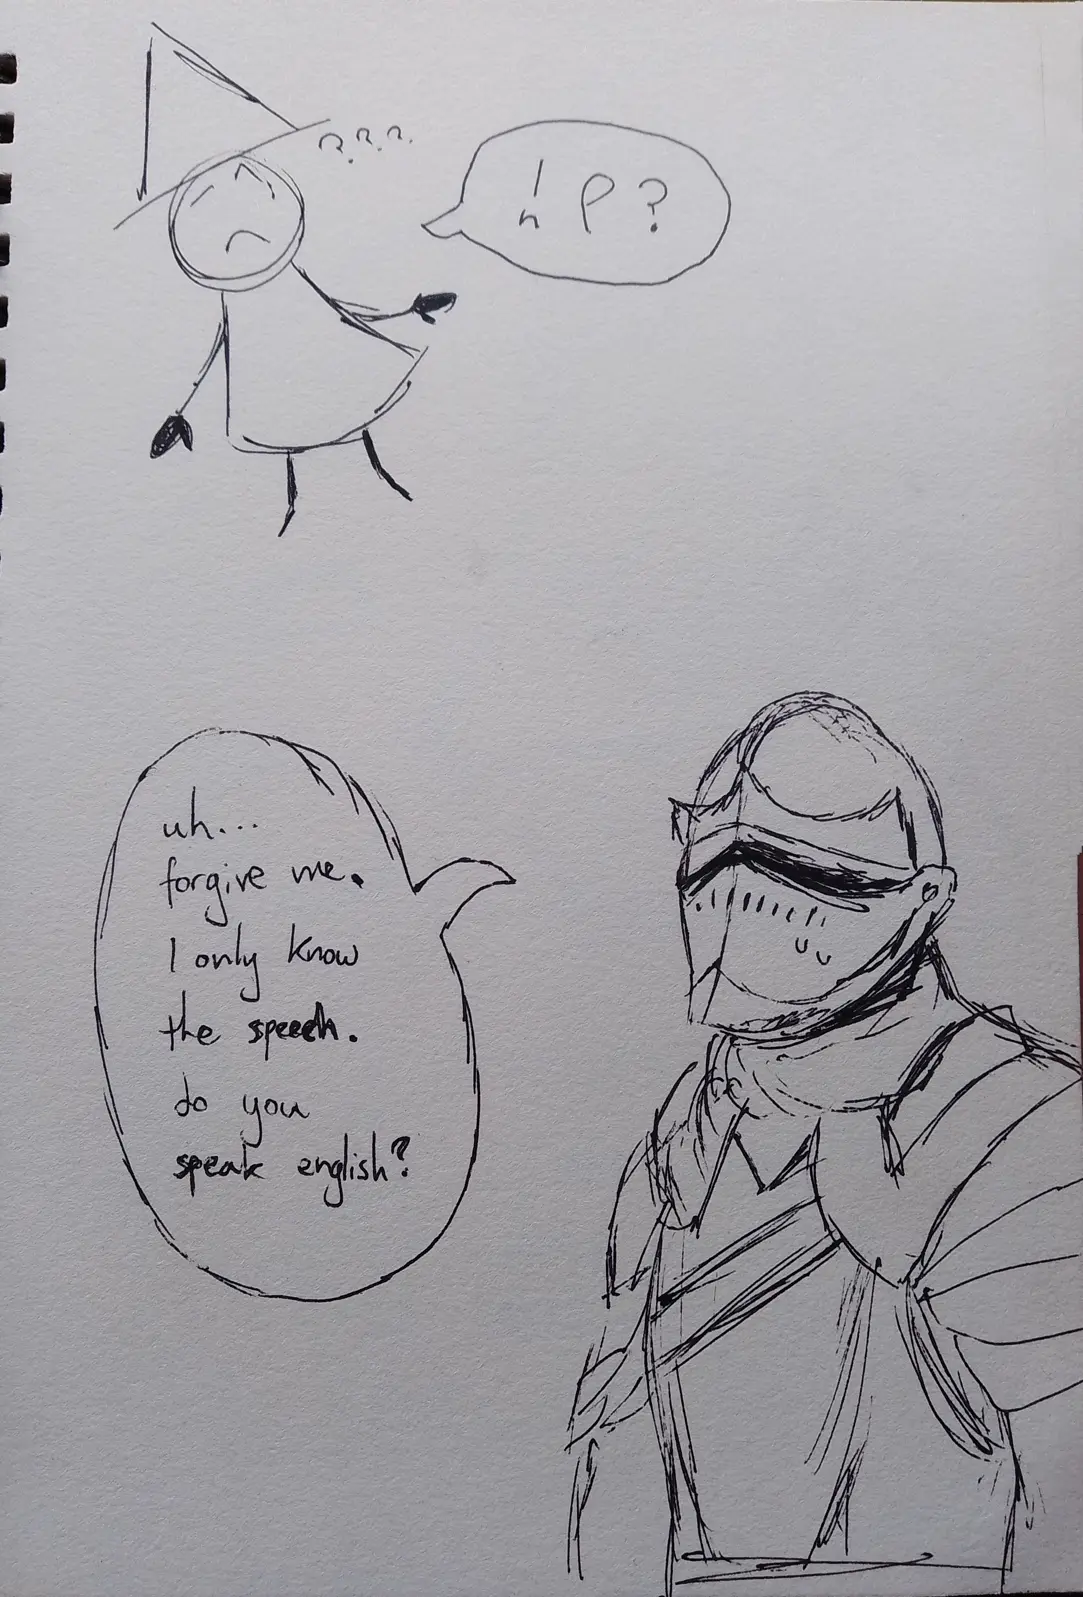 ???
uh...
forgive me.
I only know
the speech.
do you
speak english?